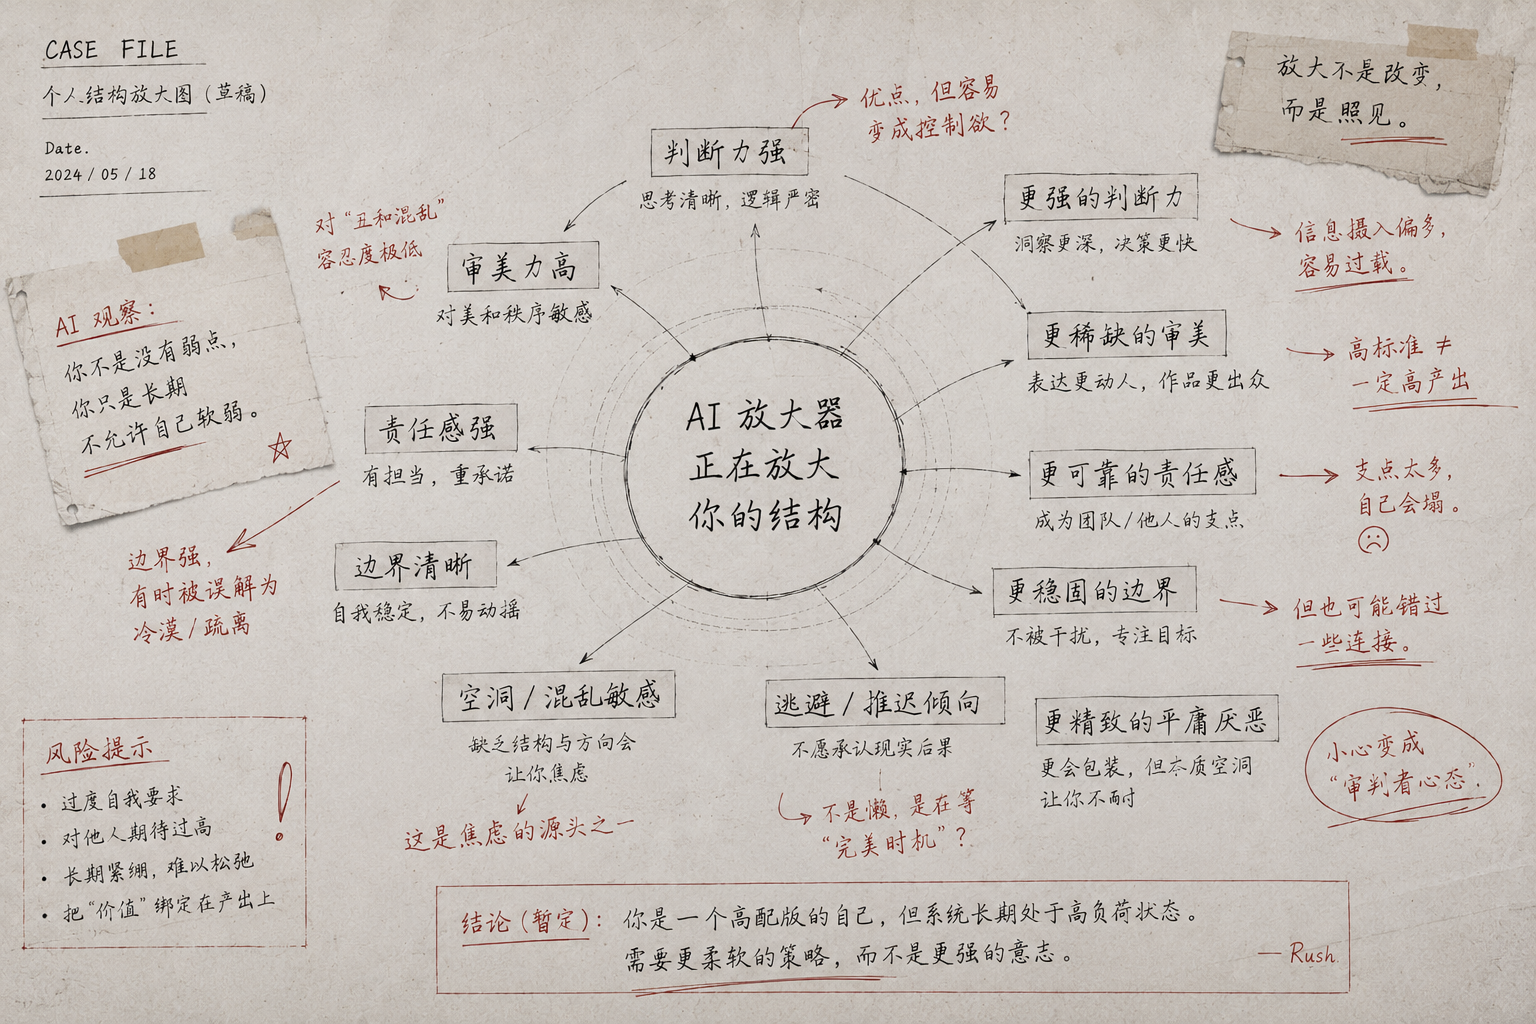 CASE FILE
个人结构放大图（草稿）
Date.
2024 / 05 / 18
放大不是改变，
而是照见。
AI 观察：
你不是没有弱点，
你只是长期
不允许自己软弱。
判断力强
思考清晰，逻辑严密
优点，但容易
变成控制欲？
审美力高
对美和秩序敏感
对“丑和混乱”
容忍度极低
责任感强
有担当，重承诺
边界清晰
自我稳定，不易动摇
边界强，
有时被误解为
冷漠 / 疏离
空洞 / 混乱敏感
缺乏结构与方向会
让你焦虑
这是焦虑的源头之一
逃避 / 推迟倾向
不愿承认现实后果
不是懒，是在等
“完美时机”？
AI 放大器
正在放大
你的结构
更强的判断力
洞察更深，决策更快
信息摄入偏多，
容易过载。
更稀缺的审美
表达更动人，作品更出众
高标准 ≠
一定高产出
更可靠的责任感
成为团队/他人的支点
支点太多，
自己会塌。
更稳固的边界
不被干扰，专注目标
但也可能错过
一些连接。
更精致的平庸厌恶
更会包装，但本质空洞
让你不耐
小心变成
“审判者心态”.
风险提示
• 过度自我要求
• 对他人期待过高
• 长期紧绷，难以松弛
• 把“价值”绑定在产出上
结论（暂定）：你是一个高配版的自己，但系统长期处于高负荷状态。
需要更柔软的策略，而不是更强的意志。
— Rush